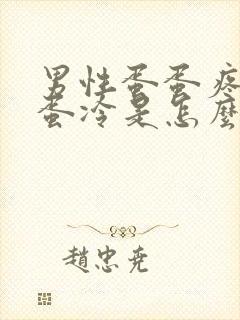 男性蛋蛋疼
蛋冷是怎麼
趙忠尭